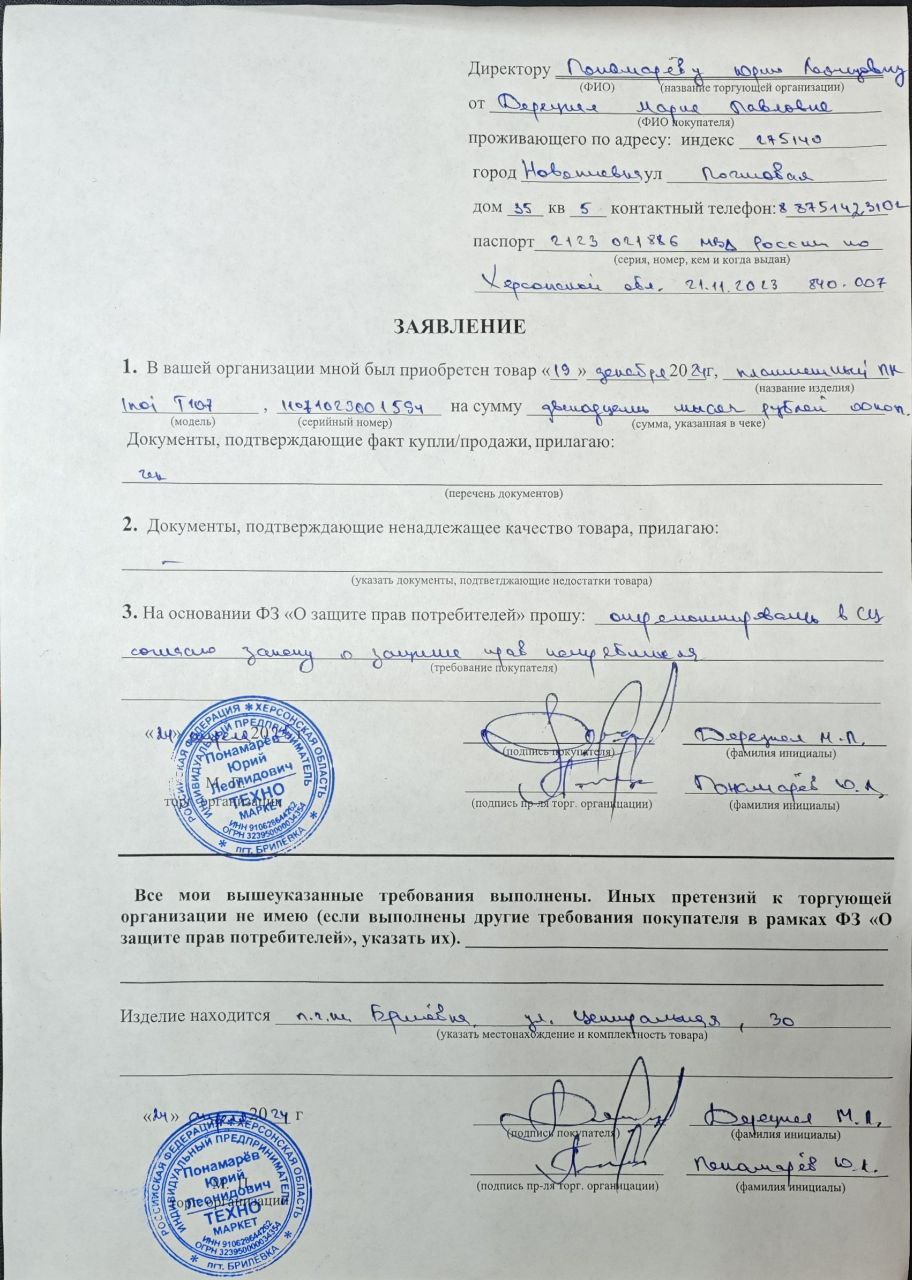 Директору Пономарёву Юрию Леонидовичу
(ФИО) (название торгующей организации)
от Марие Павловне
(ФИО покупателя)
проживающего по адресу: индекс 275140
город ул Почтовая
дом 35 кв 5 контактный телефон: 8 8751423102
паспорт 2123 021886 МВД России по
(серия, номер, кем и когда выдан)
Херсонской обл. 21.11.2023 840-007
ЗАЯВЛЕНИЕ
1. В вашей организации мной был приобретен товар «19» декабря 20 г, планшетный ПК
(название изделия)
Inoi T107 , на сумму двенадцать тысяч рублей 00коп.
(модель) (серийный номер) (сумма, указанная в чеке)
Документы, подтверждающие факт купли/продажи, прилагаю:
чек
(перечень документов)
2. Документы, подтверждающие ненадлежащее качество товара, прилагаю:
–
(указать документы, подтветджающие недостатки товара)
3. На основании ФЗ «О защите прав потребителей» прошу: отремонтировать в СЦ
согласно закону о защите прав потребителя
(требование покупателя)
«24» апреля 20 г
(подпись покупателя) М.П.
(фамилия инициалы)
М. П.
торг. организации
(подпись пр-ля торг. органицации) Пономарёв Ю.Л.
(фамилия инициалы)
РОССИЙСКАЯ ФЕДЕРАЦИЯ * ХЕРСОНСКАЯ ОБЛАСТЬ
ИНДИВИДУАЛЬНЫЙ ПРЕДПРИНИМАТЕЛЬ
Понамарёв
Юрий
Леонидович
ТЕХНО
МАРКЕТ
ИНН 910628644262
ОГРН 323950000034354
* пгт. БРИЛЕВКА *
Все мои вышеуказанные требования выполнены. Иных претензий к торгующей
организации не имею (если выполнены другие требования покупателя в рамках ФЗ «О
защите прав потребителей», указать их).
Изделие находится п.г.т. Брилёвка, ул. Центральная, 30
(указать местонахождение и комплектность товара)
«24» апреля 2024 г
(подпись покупателя) М.П.
(фамилия инициалы)
М. П.
торг. организации
(подпись пр-ля торг. органицации) Пономарёв Ю.Л.
(фамилия инициалы)
РОССИЙСКАЯ ФЕДЕРАЦИЯ * ХЕРСОНСКАЯ ОБЛАСТЬ
ИНДИВИДУАЛЬНЫЙ ПРЕДПРИНИМАТЕЛЬ
Понамарёв
Юрий
Леонидович
ТЕХНО
МАРКЕТ
ИНН 910628644262
ОГРН 323950000034354
* пгт. БРИЛЕВКА *